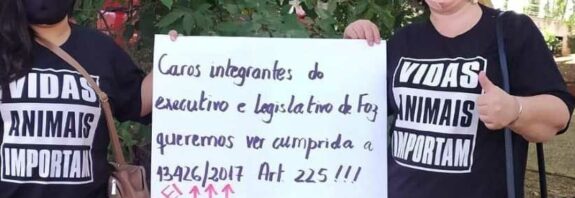 VIDAS
ANIMAIS
IMPORTAM
Caros integrantes do
executivo e legislativo de Foz
queremos ver cumprida a
13426/2017 Art 225 !!!
VIDAS
ANIMAIS
IMPORTAM